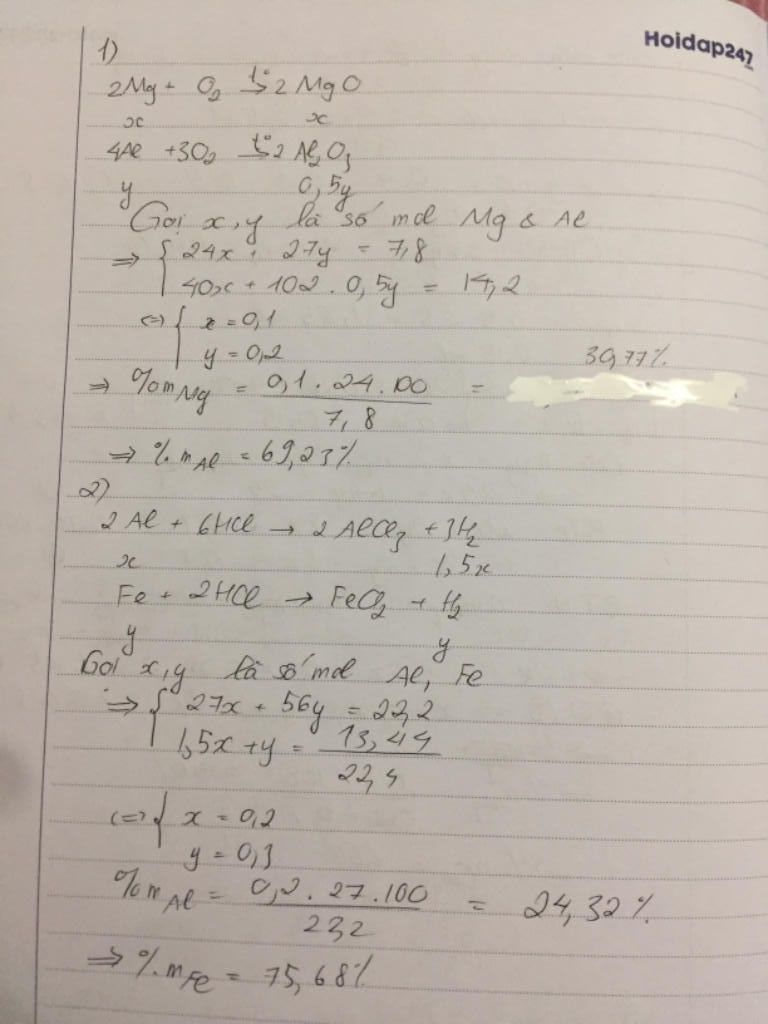 Hoidap247
1)
2Mg + O₂ →(t°) 2 MgO
x x
4Al + 3O₂ →(t°) 2 Al₂O₃
y 0,5y
Gọi x, y là số mol Mg & Al
⇒ { 24x + 27y = 7,8
40x + 102 . 0,5y = 14,2
⇔ { x = 0,1
y = 0,2
30,77%
⇒ %mMg = 0,1 . 24 . 100 / 7,8 =
⇒ % mAl = 69,23%
2)
2 Al + 6HCl → 2 AlCl₃ + 3H₂
x 1,5x
Fe + 2HCl → FeCl₂ + H₂
y y
Gọi x, y là số mol Al, Fe
⇒ { 27x + 56y = 22,2
1,5x + y = 13,44 / 22,4
⇔ { x = 0,2
y = 0,3
%mAl = 0,2 . 27 . 100 / 22,2 = 24,32%
⇒ %.mFe = 75,68%